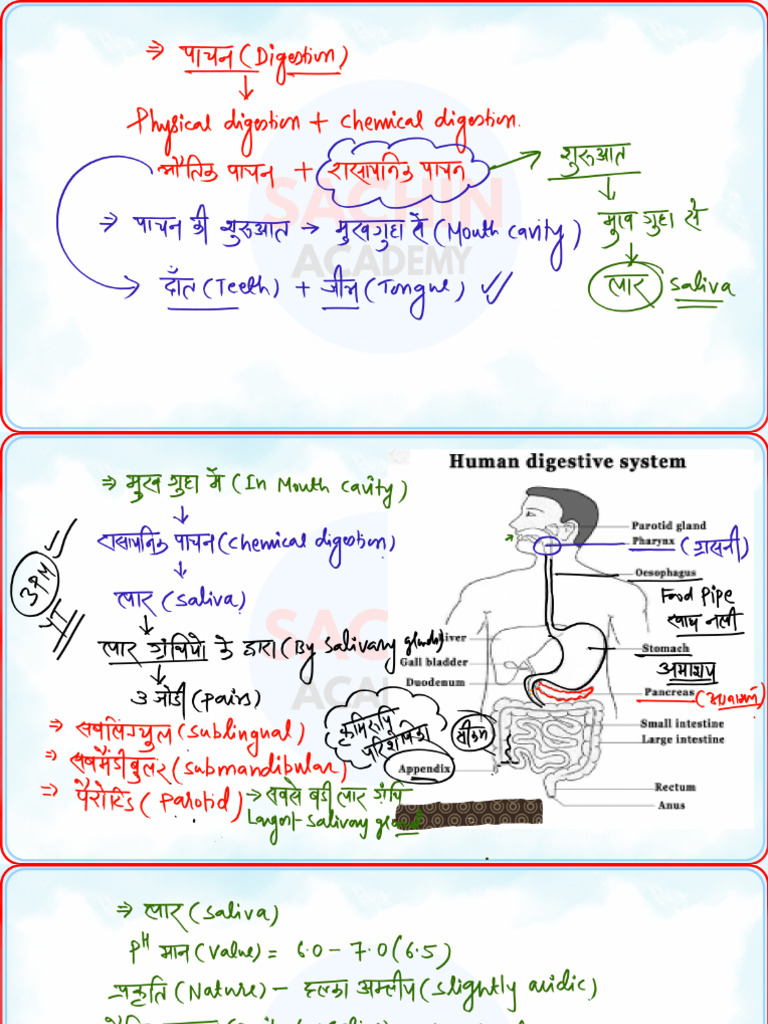 ⇒ पाचन (Digestion)
↓
Physical digestion + chemical digestion.
भौतिक पाचन + रासायनिक पाचन → शुरूआत
↓
मुख गुहा से
↓
लार saliva
⇒ पाचन की शुरूआत → मुखगुहा से (Mouth cavity)
→ दाँत (Teeth) + जीभ (Tongue)
SACHIN
ACADEMY
⇒ मुख गुहा में (In Mouth cavity)
↓
रासायनिक पाचन (chemical digestion)
↓
लार (saliva)
↓
लार ग्रंथियो के द्वारा (By Salivary glands)
↓
3 जोडी (pairs)
⇒ सबलिंगुल (Sublingual)
⇒ सबमैंडीबुलर (submandibular)
⇒ पैरोटिड (Parotid) → सबसे बडी लार ग्रंथि
Largest salivary gland
3 PM
Human digestive system
Parotid gland
Pharynx (ग्रसनी)
Oesophagus
Food Pipe
खाद्य नली
Liver
Stomach
आमाशय
Gall bladder
Duodenum
Pancreas (अग्नाशय)
कृमिरूपी
परिशेषिका
सीकम
Small intestine
Large intestine
Appendix
Rectum
Anus
⇒ लार (saliva)
pH मान (Value) = 6.0 – 7.0 (6.5)
प्रकृति (Nature) – हल्का अम्लीय (slightly acidic)